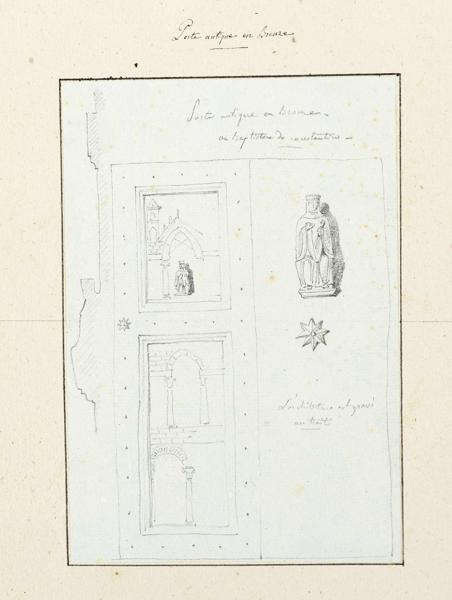 Porte antique en Bronze
Porte antique en Bronze
au Baptistere de constantin
L'architecture est gravé
au trait